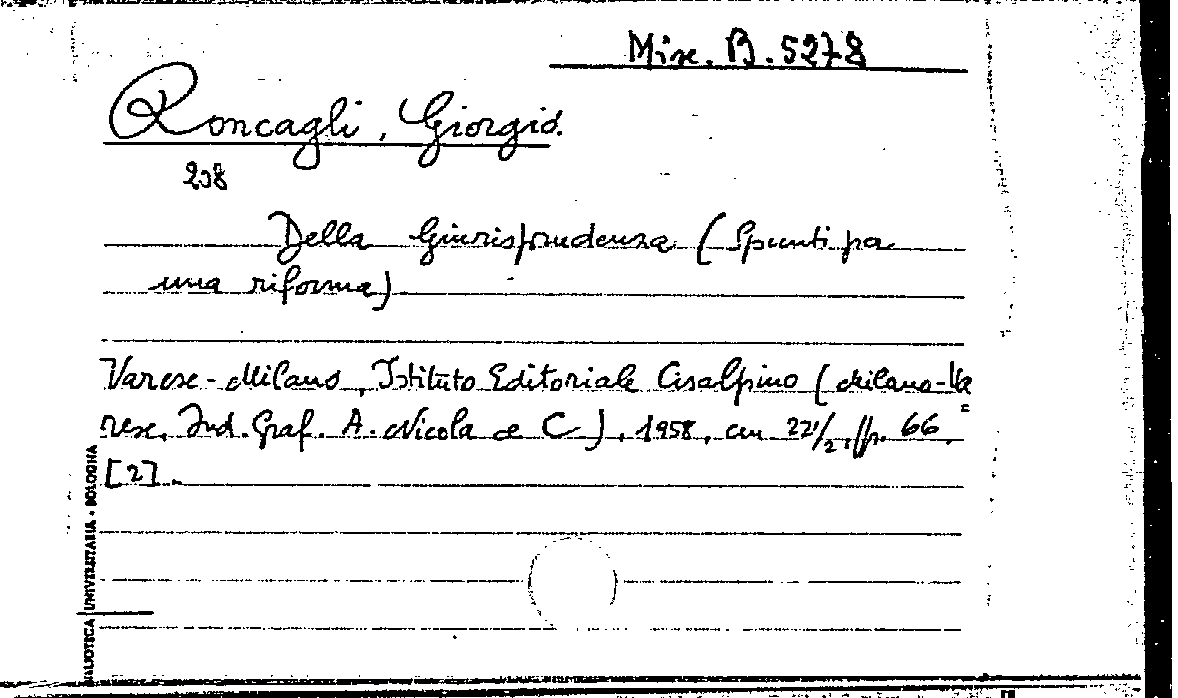 Misc. B. 5278
Roncagli, Giorgio.
208
Della Giurisprudenza (Spunti per
una riforma)
Varese-Milano, Istituto Editoriale Cisalpino (Milano-Va
rese, Ind. Graf. A. Nicola e C), 1958, cm 22½, pp. 66,
[2].
BIBLIOTECA UNIVERSITARIA - BOLOGNA